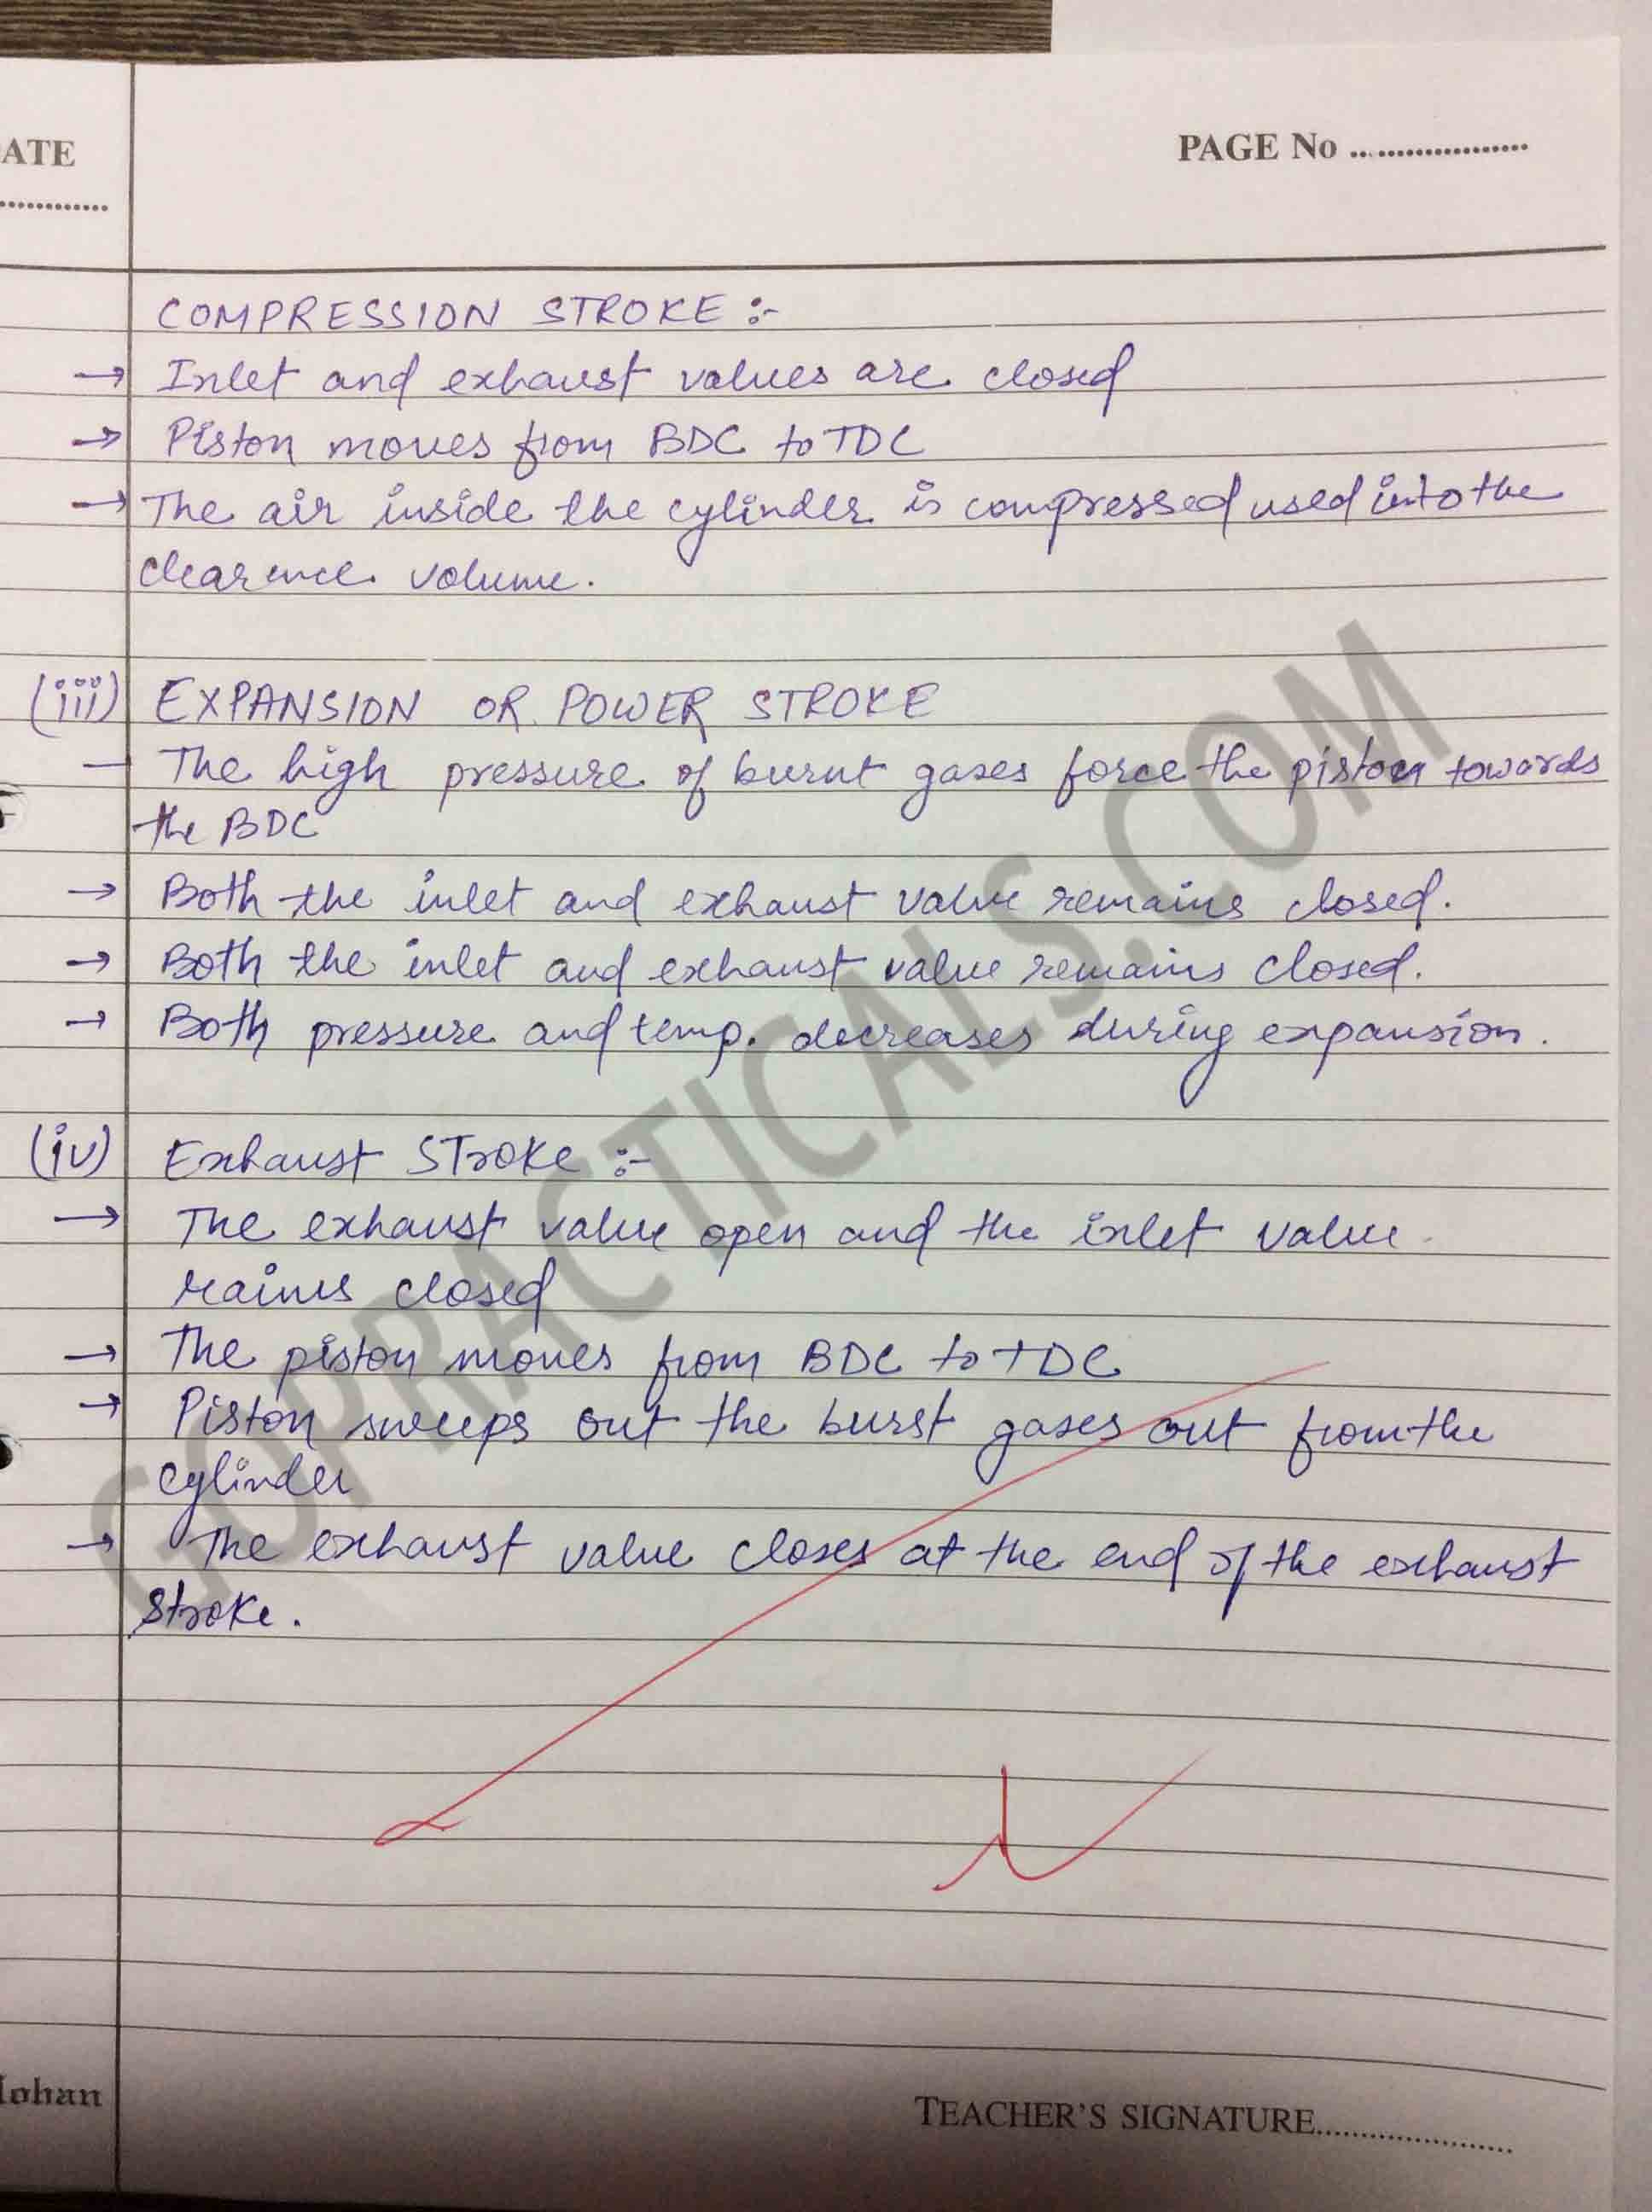 ATE
PAGE No ..................
............
COMPRESSION STROKE :-
→ Inlet and exhaust values are closed
→ Piston moves from BDC to TDC
→ The air inside the cylinder is compressed used into the
clearence volume.
(iii) EXPANSION OR POWER STROKE
- The high pressure of burnt gases force the piston towards
the BDC
→ Both the inlet and exhaust valve remains closed.
→ Both the inlet and exhaust value remains closed.
→ Both pressure and temp. decreases during expansion.
(iv) Exhaust STroke :-
→ The exhaust value open and the inlet value
rains closed
→ The piston moves from BDC to TDC
→ Piston sweeps out the burst gases out from the
cylinder
→ The exhaust value closes at the end of the exhaust
stroke.
GOPRACTICALS.COM
lohan
TEACHER'S SIGNATURE........................